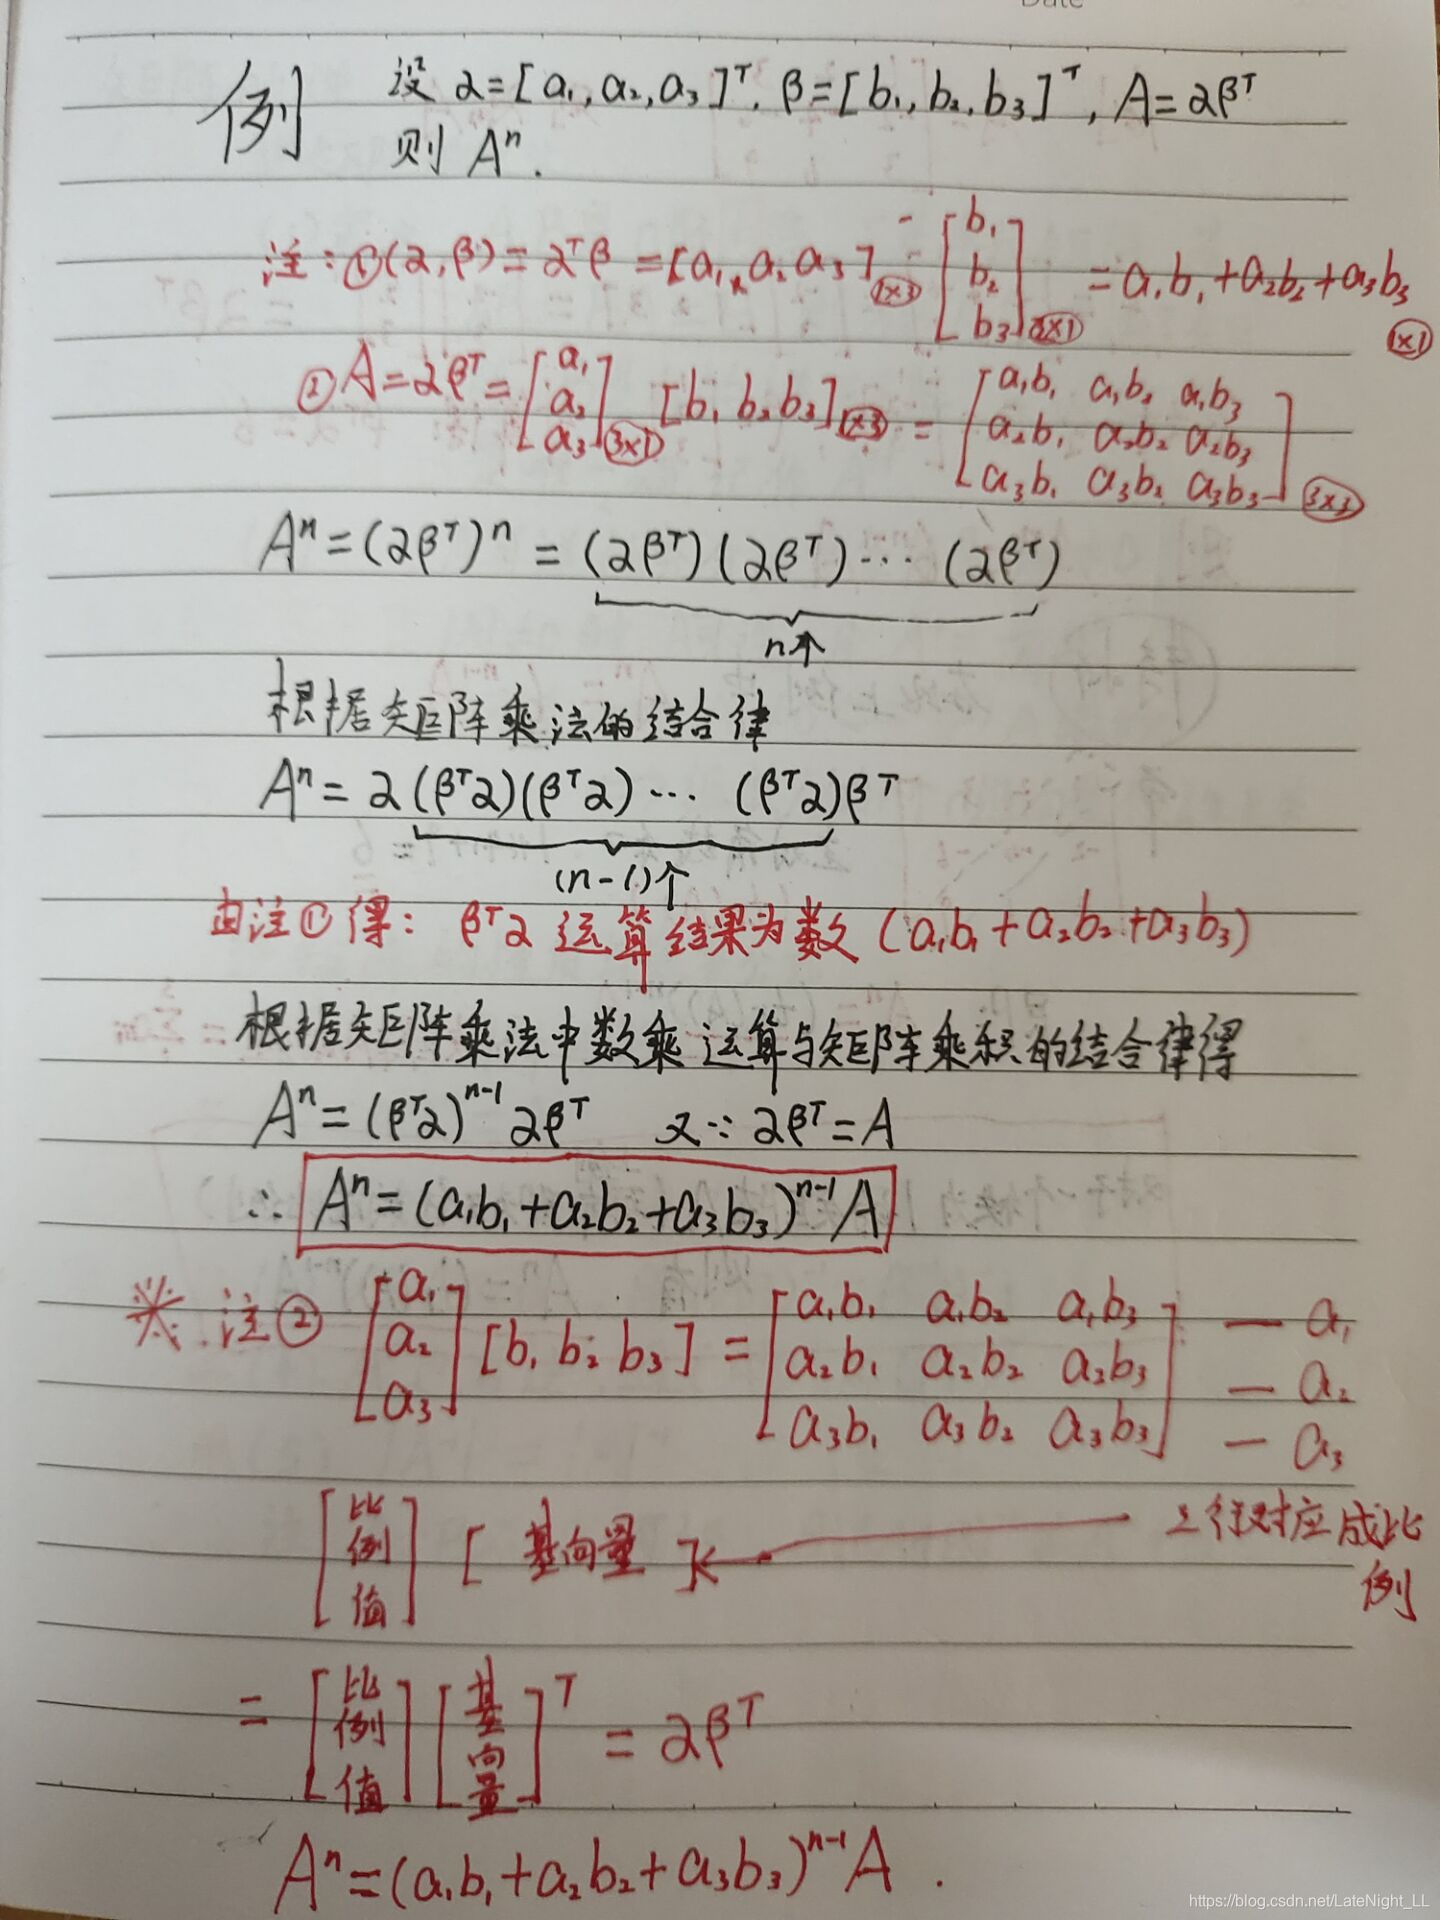 Date
例 设 α=[a₁,a₂,a₃]ᵀ. β=[b₁,b₂,b₃]ᵀ, A=αβᵀ
则 Aⁿ.
注:①(α,β)=αᵀβ=[a₁ a₂ a₃]1×3 [b₁ b₂ b₃]3×1 =a₁b₁+a₂b₂+a₃b₃ 1×1
②A=αβᵀ=[a₁ a₂ a₃]3×1 [b₁ b₂ b₃]1×3 = [a₁b₁ a₁b₂ a₁b₃
a₂b₁ a₂b₂ a₂b₃
a₃b₁ a₃b₂ a₃b₃]3×3
Aⁿ=(αβᵀ)ⁿ=(αβᵀ)(αβᵀ)···(αβᵀ)
n个
根据矩阵乘法的结合律
Aⁿ=α(βᵀα)(βᵀα)···(βᵀα)βᵀ
(n-1)个
由注①得: βᵀα 运算结果为数(a₁b₁+a₂b₂+a₃b₃)
根据矩阵乘法中数乘运算与矩阵乘积的结合律得
Aⁿ=(βᵀα)ⁿ⁻¹αβᵀ 又∵ αβᵀ=A
∴ Aⁿ=(a₁b₁+a₂b₂+a₃b₃)ⁿ⁻¹A
※ 注② [a₁ a₂ a₃] [b₁ b₂ b₃] = [a₁b₁ a₁b₂ a₁b₃ — a₁
a₂b₁ a₂b₂ a₂b₃ — a₂
a₃b₁ a₃b₂ a₃b₃] — a₃
[比例值] [基向量] 行对应成比例
= [比例值][基向量]ᵀ = αβᵀ
Aⁿ=(a₁b₁+a₂b₂+a₃b₃)ⁿ⁻¹A.
https://blog.csdn.net/LateNight_LL